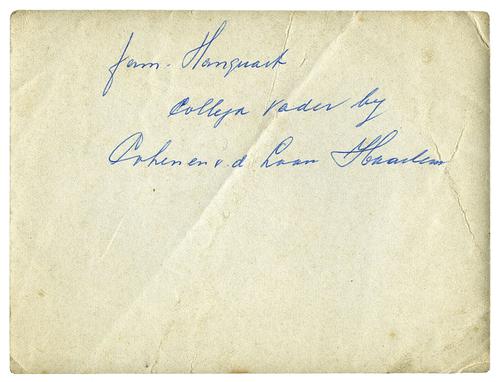 fam. Hanquart
Collega Vader by
Cohen en v.d Laan Haarlem